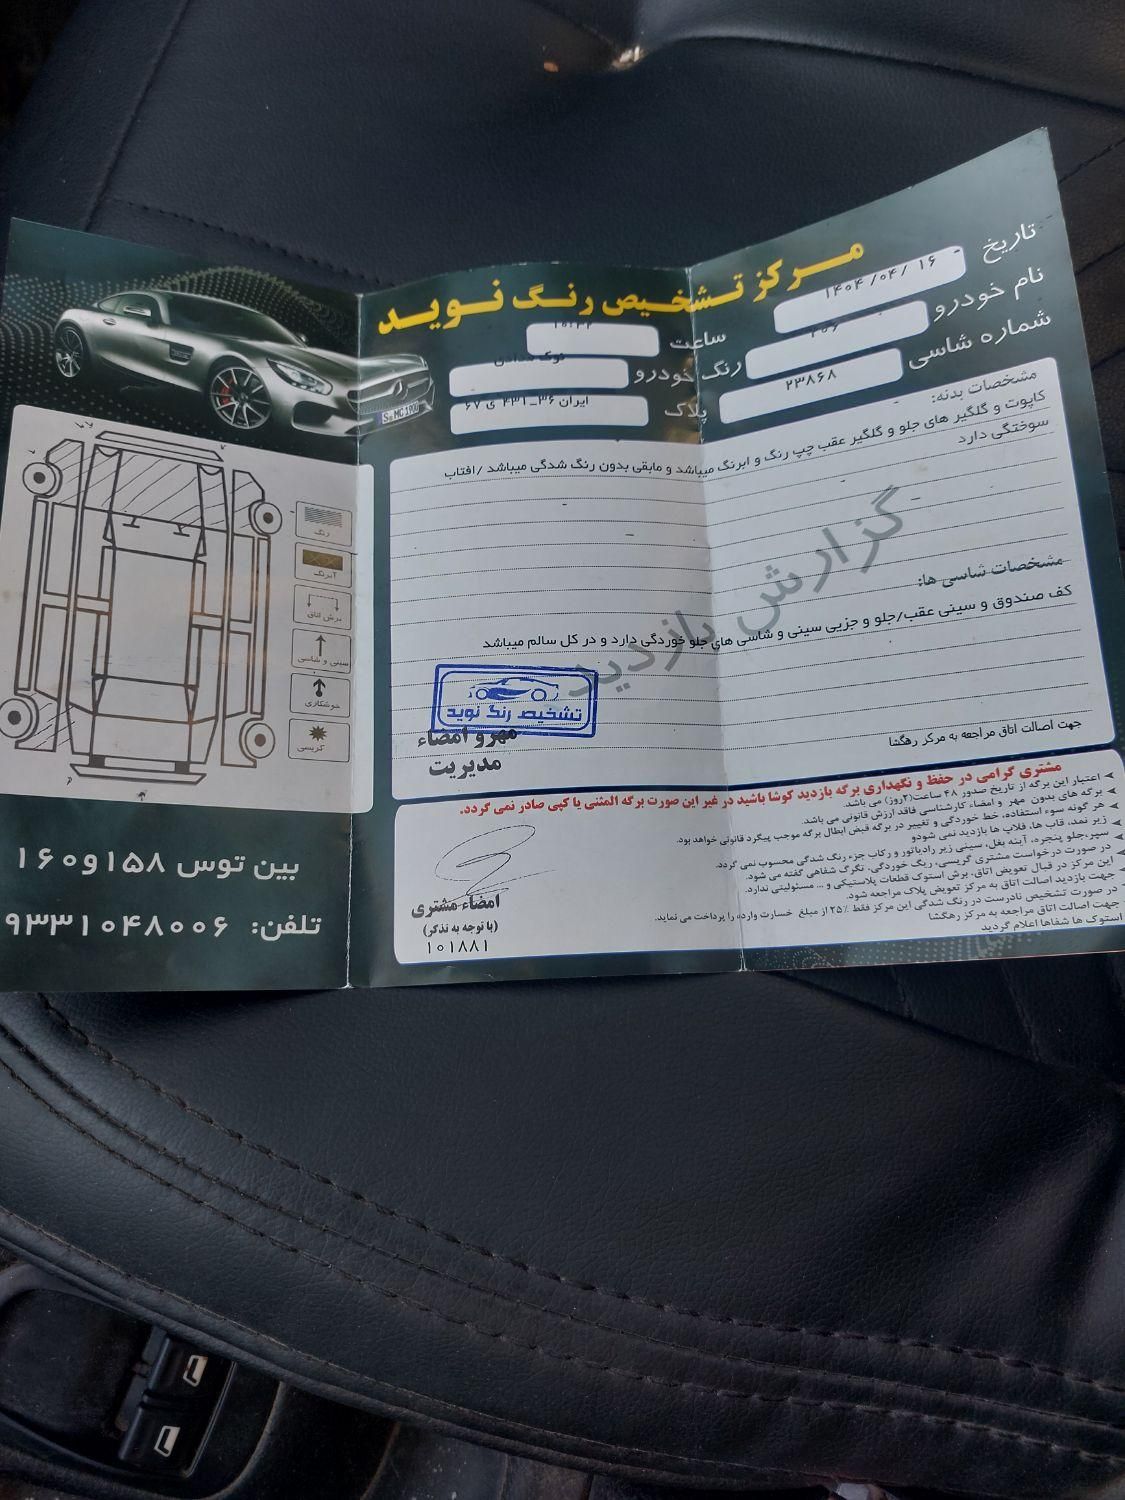 مرکز تشخیص رنگ نوید
تاریخ
۱۴۰۴/۰۴/۱۶
ساعت
۱۰:۴۲
نام خودرو
۲۰۶
رنگ خودرو
نوک مدادی
شماره شاسی
۲۳۸۶۸
پلاک
ایران ۳۶_۴۳۱ ی ۶۷
مشخصات بدنه:
کاپوت و گلگیر های جلو و گلگیر عقب چپ رنگ و ابرنگ میباشد و مابقی بدون رنگ شدگی میباشد / افتاب
سوختگی دارد
گزارش بازدید
مشخصات شاسی ها:
کف صندوق و سینی عقب/جلو و جزیی سینی و شاسی های جلو خوردگی دارد و در کل سالم میباشد
تشخیص رنگ نوید
مهر و امضاء
مدیریت
جهت اصالت اتاق مراجعه به مرکز رهگشا
مشتری گرامی در حفظ و نگهداری برگه بازدید کوشا باشید در غیر این صورت برگه المثنی یا کپی صادر نمی گردد.
اعتبار این برگه از تاریخ صدور ۴۸ ساعت(۲روز) می باشد.
برگه های بدون مهر و امضاء کارشناسی فاقد ارزش قانونی می باشد.
هر گونه سوء استفاده، خط خوردگی و تغییر در برگه قبض ابطال برگه موجب پیگرد قانونی خواهد بود.
زیر نمد، قاب ها، فلاپ ها بازدید نمی شود
سپر،جلو پنجره، آینه بغل، سینی زیر رادیاتور و رکاب جزء رنگ شدگی محسوب نمی گردد.
در صورت درخواست مشتری گریسی، ریگ خوردگی، تگرگ شفاهی گفته می شود.
این مرکز در قبال تعویض اتاق، برش استوک قطعات پلاستیکی و ... مسئولیتی ندارد.
جهت بازدید اصالت اتاق به مرکز تعویض پلاک مراجعه شود.
در صورت تشخیص نادرست در رنگ شدگی این مرکز فقط ۲۵٪ از مبلغ خسارت وارده را پرداخت می نماید.
جهت اصالت اتاق مراجعه به مرکز رهگشا
استوک ها شفاها اعلام گردید
امضاء مشتری
(با توجه به تذکر)
۱۰۱۸۸۱
رنگ
آبرنگ
برش اتاق
سینی و شاسی
جوشکاری
گریسی
بین توس ۱۵۸و۱۶۰
تلفن: ۹۳۳۱۰۴۸۰۰۶